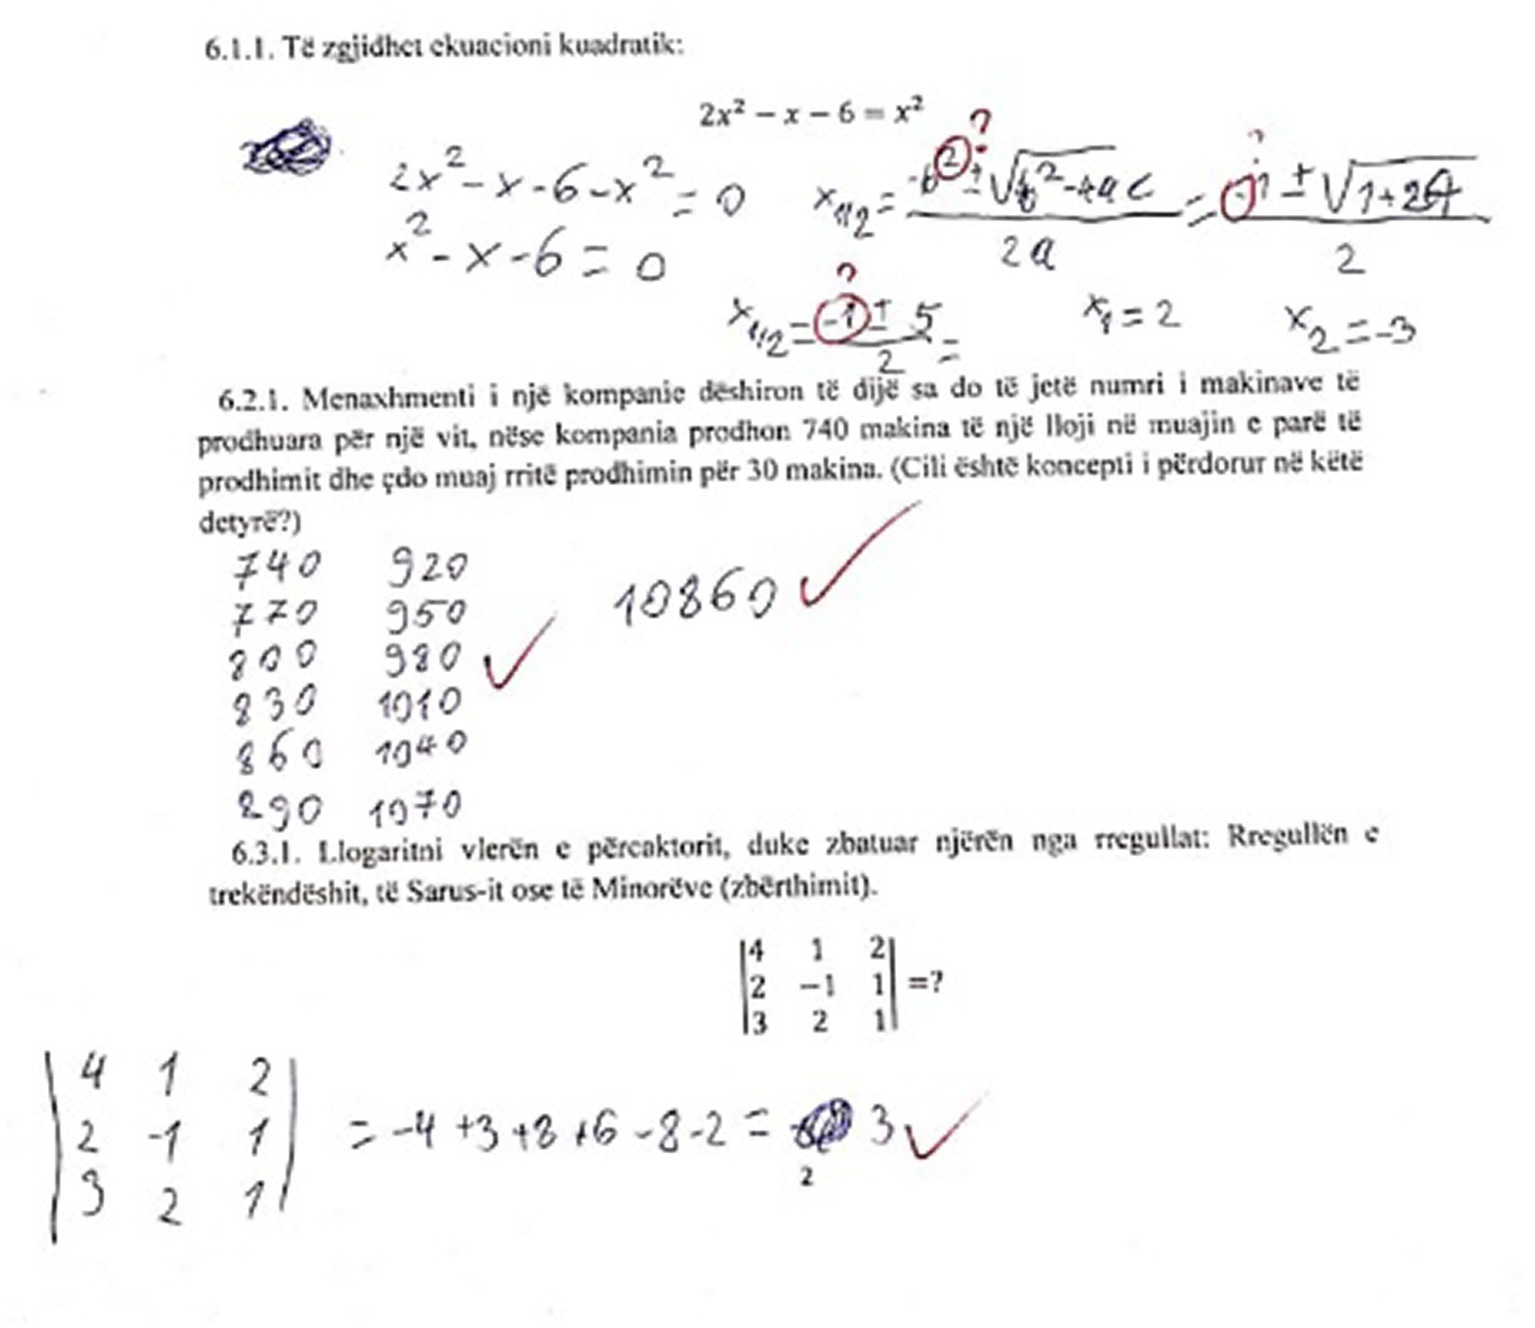 6.1.1. Të zgjidhet ekuacioni kuadratik:
2x² − x − 6 = x²
2x² - x - 6 - x² = 0
x² - x - 6 = 0
?
x₁/₂ = -b² ± √b²-4ac / 2a = -1 ± √1+24 / 2
?
?
x₁/₂ = -1 ± 5 / 2 =
x₁ = 2
x₂ = -3
6.2.1. Menaxhmenti i një kompanie dëshiron të dijë sa do të jetë numri i makinave të
prodhuara për një vit, nëse kompania prodhon 740 makina të një lloji në muajin e parë të
prodhimit dhe çdo muaj rritë prodhimin për 30 makina. (Cili është koncepti i përdorur në këtë
detyrë?)
740 920
770 950
800 980 ✓
830 1010
860 1040
890 1070
10860 ✓
6.3.1. Llogaritni vlerën e përcaktorit, duke zbatuar njërën nga rregullat: Rregullën e
trekëndëshit, të Sarus-it ose të Minorëve (zbërthimit).
|4 1 2|
|2 −1 1| =?
|3 2 1|
|4 1 2|
|2 -1 1| = -4 +3 +8 +6 -8 -2 = 3 ✓
|3 2 1|
2